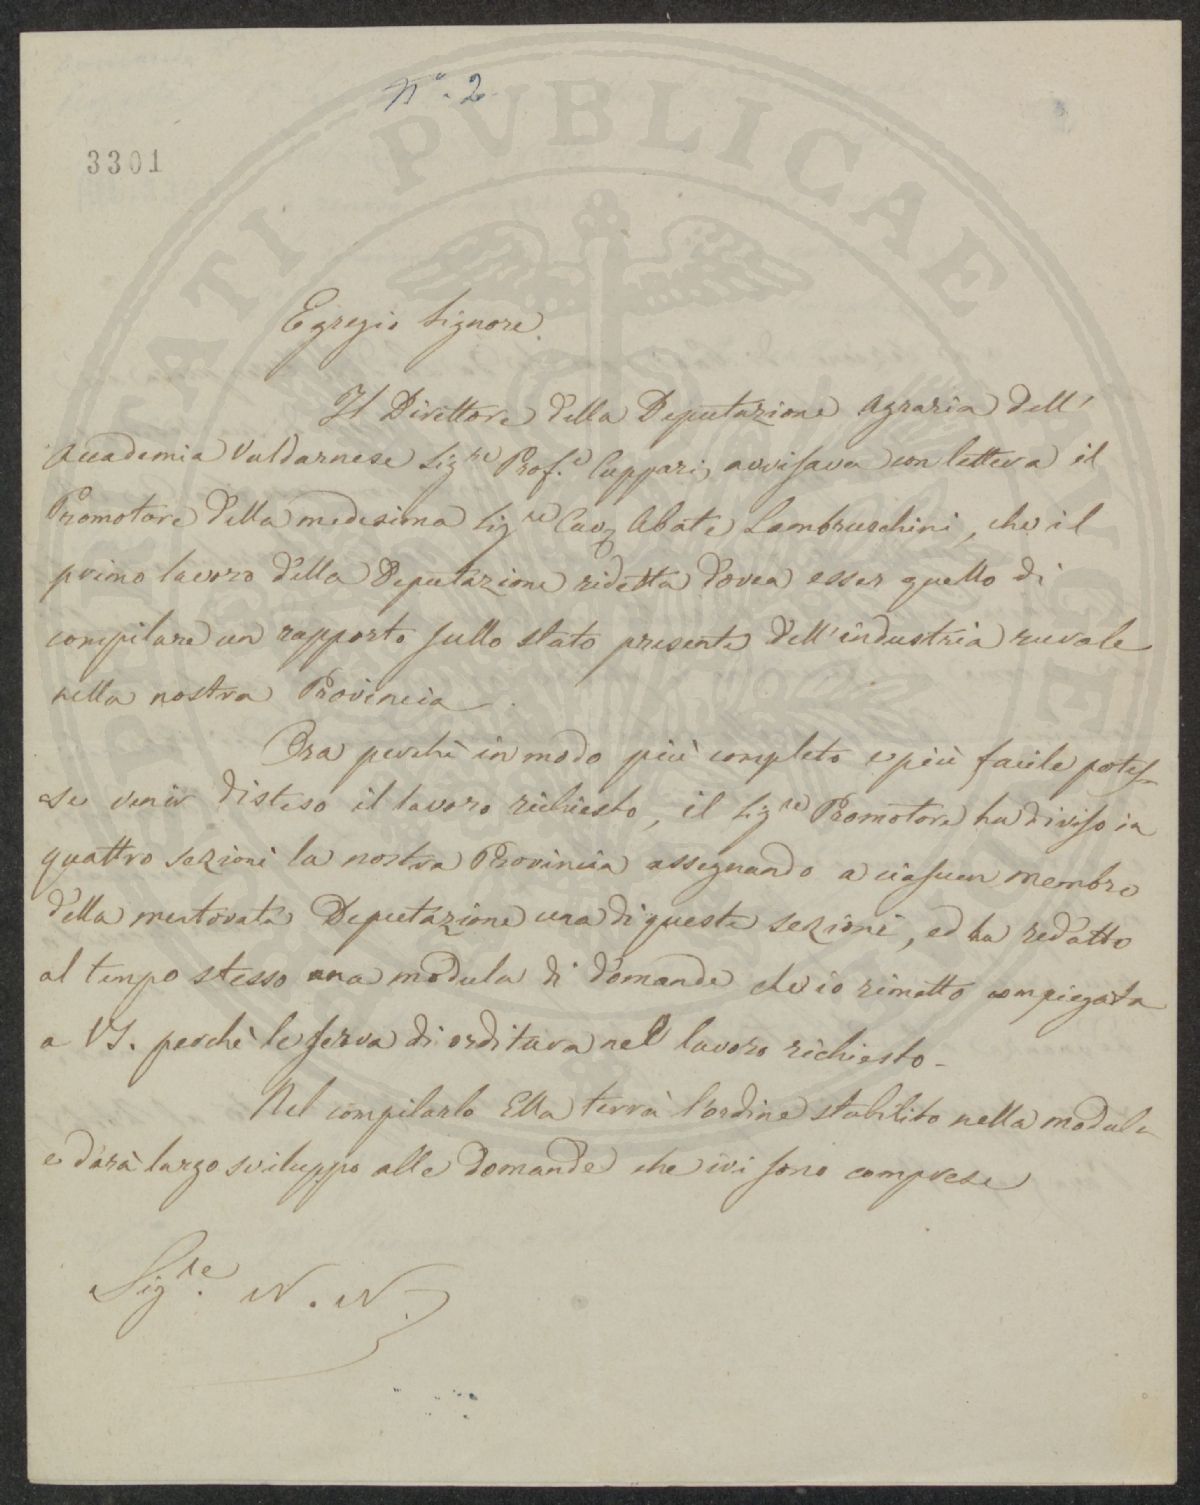 N.° 2
3301
Egregio Signore
Il Direttore della Deputazione Agraria dell'
Accademia Valdarnese Sig.re Prof.e Cuppari, avvisava con lettera il
Promotore della medesima Sig.re Cav. Abate Lambruschini, che il
primo lavoro della Deputazione ridetta dovea esser quello di
compilare un rapporto sullo stato presente dell'industria rurale
nella nostra Provincia.
Ora perchè in modo più completo e più facile potes-
se venir disteso il lavoro richiesto, il Sig.re Promotore ha diviso in
quattro sezioni la nostra Provincia assegnando a ciascun membro
della mentovata Deputazione una di queste sezioni, ed ha redatto
al tempo stesso una modula di domande che io rimetto compiegata
a VS. perchè le serva di orditura nel lavoro richiesto.
Nel compilarlo Ella terrà l'ordine stabilito nella modula
e darà largo sviluppo alle domande che ivi sono comprese
Sig.re N. N.
PVBLICAE